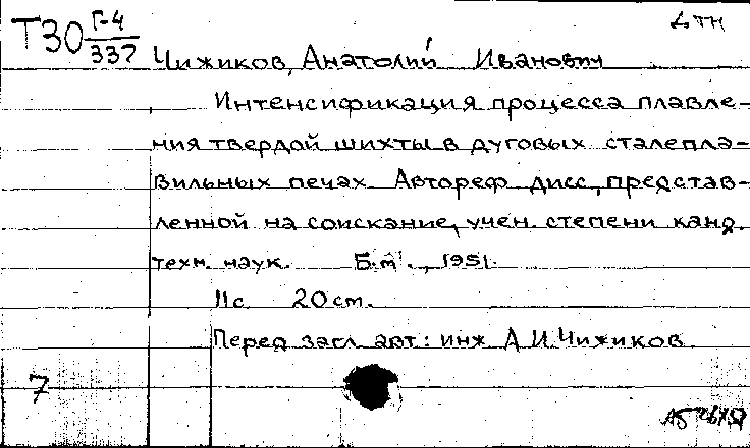 Т30 Г-4
337
Чижиков, Анатолий Иванович
Интенсификация процесса плавле-
ния твердой шихты в дуговых сталепла-
вильных печах. Автореф. дисс., представ-
ленной на соискание, учен. степени канд.
техн. наук. Б.м., 1951.
11с. 20см.
Перед загл. авт.: инж. А.И. Чижиков.
7